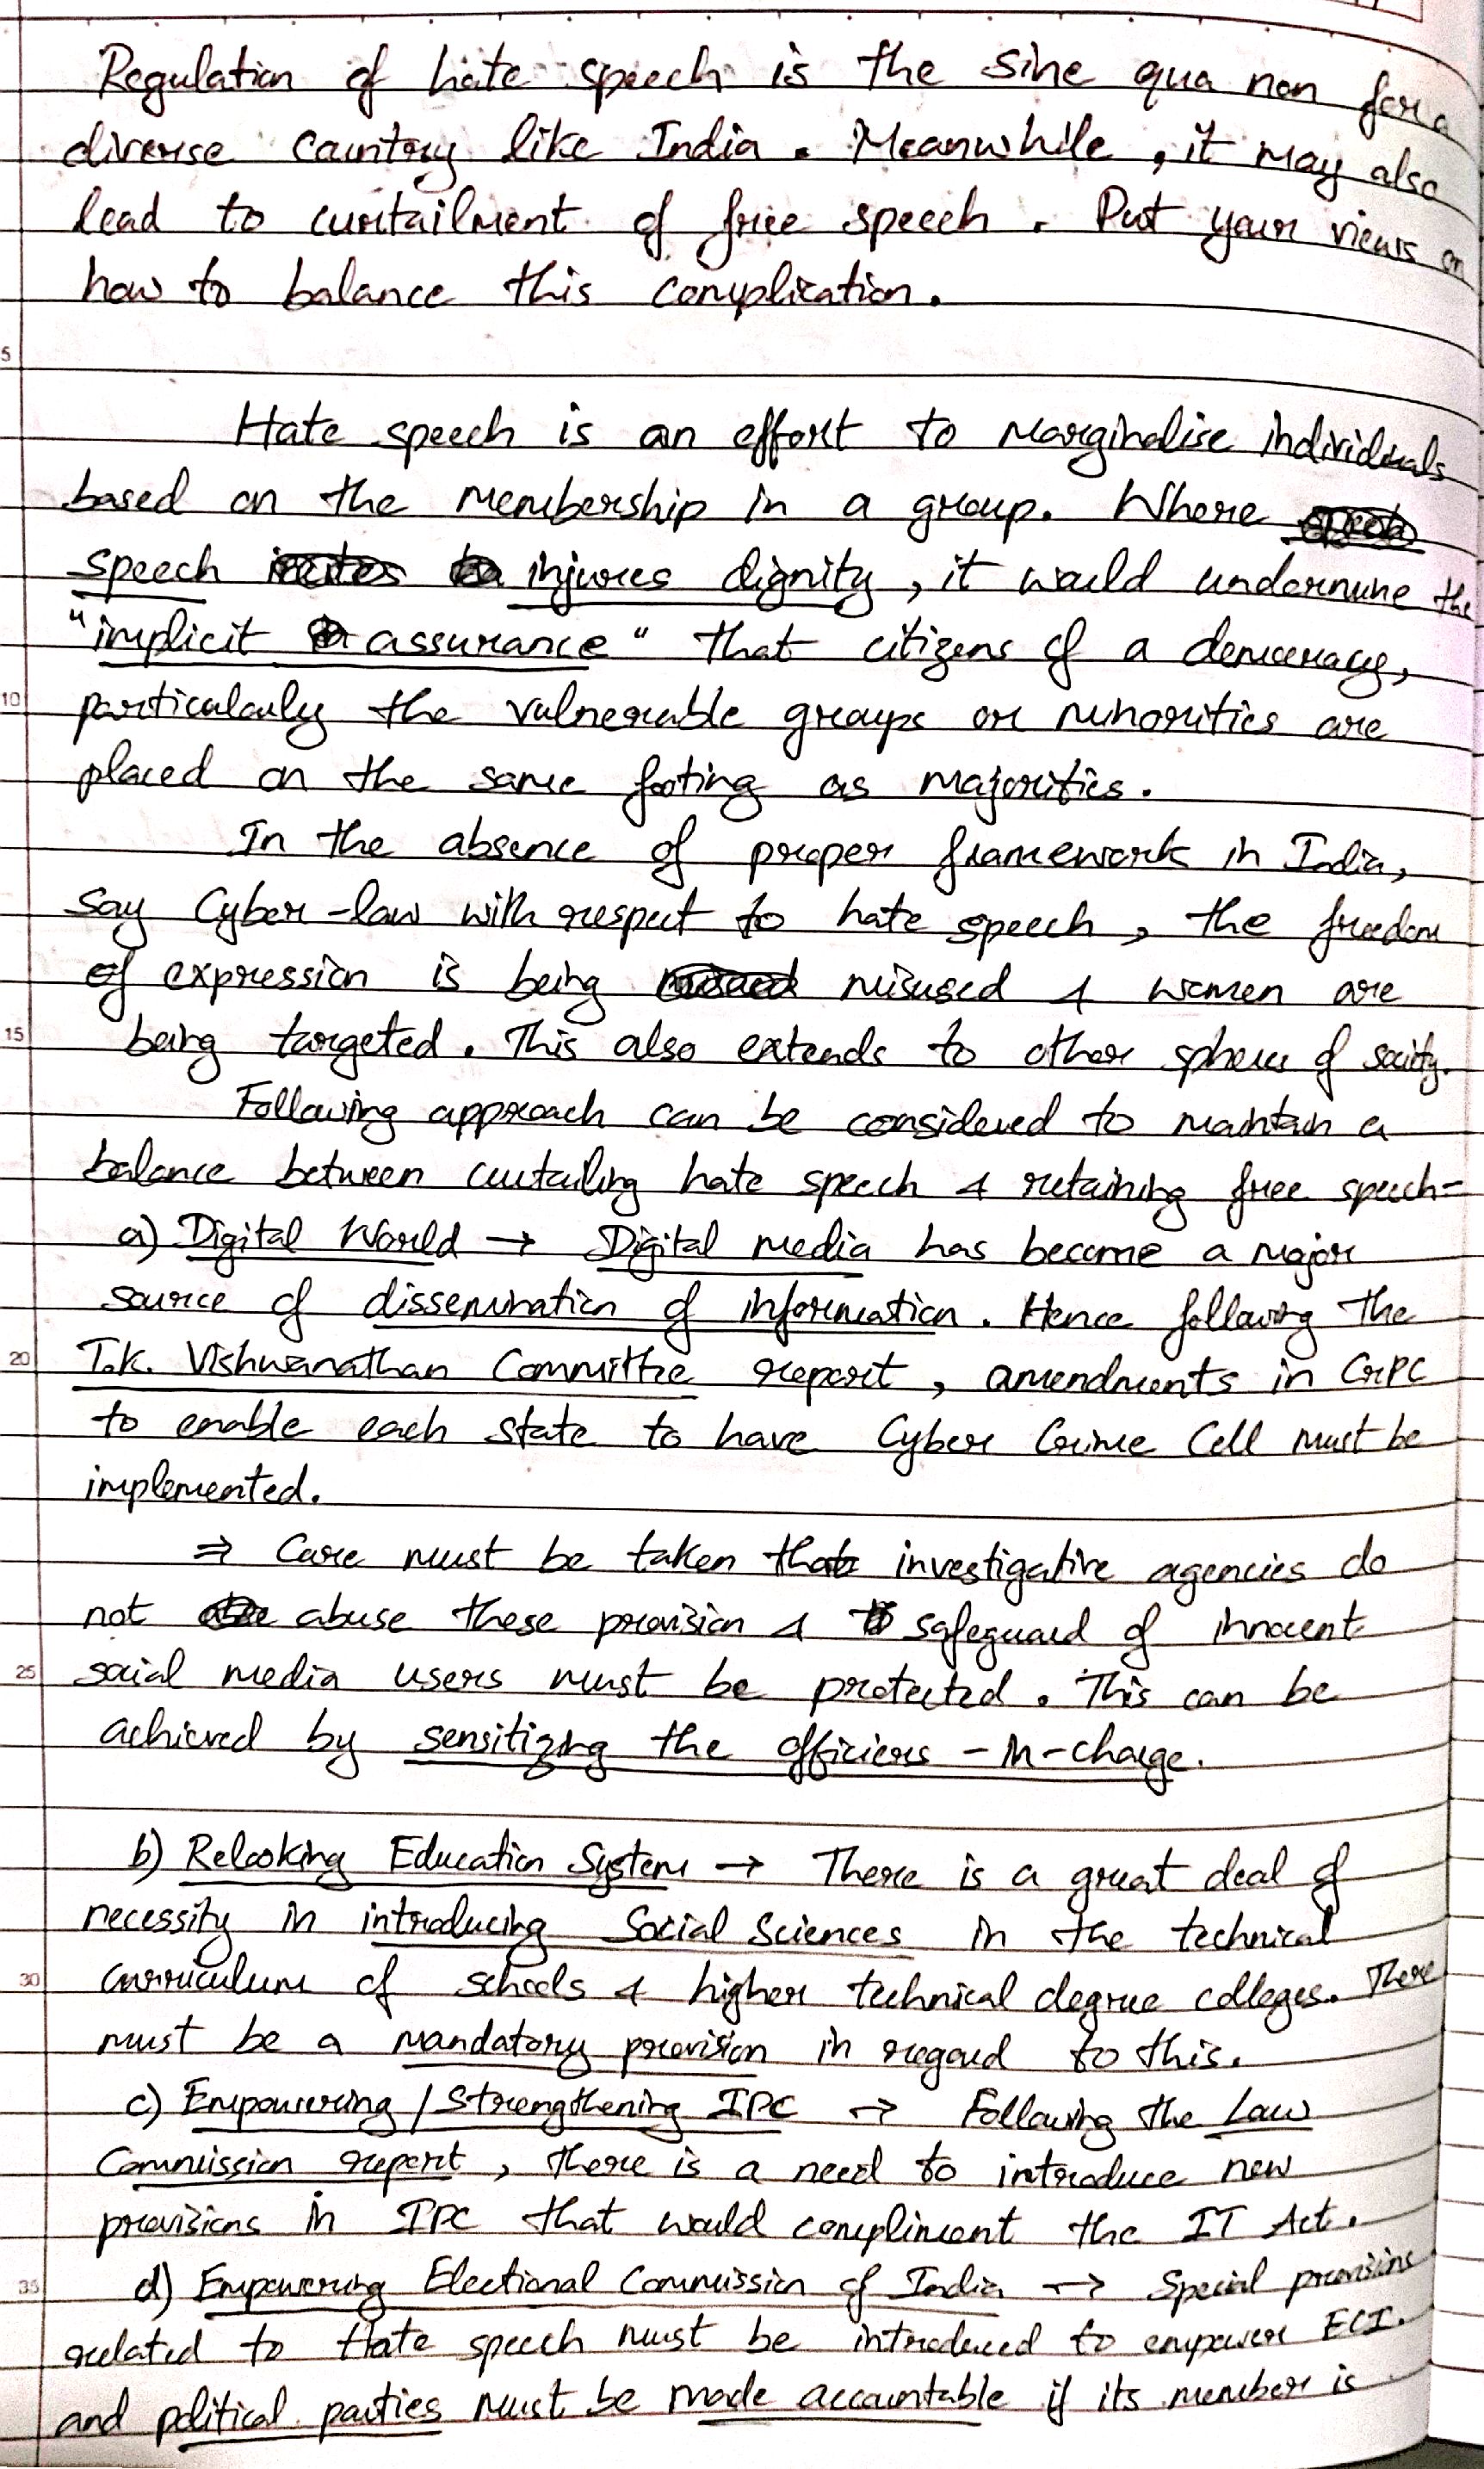 Regulation of hate speech is the sine qua non for a
diverse country like India. Meanwhile, it may also
lead to curtailment of free speech. Put your views on
how to balance this complication.
5
Hate speech is an effort to marginalise individuals
based on the membership in a group. Where
speech injures dignity, it would undermine the
"implicit assurance" that citizens of a democracy,
10 particularly the vulnerable groups or minorities are
placed on the same footing as majorities.
In the absence of proper framework in India,
say Cyber-law with respect to hate speech, the freedom
of expression is being misused & women are
15 being targeted. This also extends to other spheres of society.
Following approach can be considered to maintain a
balance between curtailing hate speech & retaining free speech-
a) Digital World → Digital media has become a major
source of dissemination of information. Hence following the
20 T.K. Vishwanathan Committee report, amendments in CrPC
to enable each state to have Cyber Crime Cell must be
implemented.
⇒ Care must be taken that investigative agencies do
not abuse these provision & safeguard of innocent
25 social media users must be protected. This can be
achieved by sensitizing the officiers-in-charge.
b) Relooking Education System → There is a great deal of
necessity in introducing Social Sciences in the technical
30 curriculum of schools & higher technical degree colleges. There
must be a mandatory provision in regard to this.
c) Empowering/Strengthening IPC → Following the Law
Commission report, there is a need to introduce new
provisions in IPC that would compliment the IT Act.
35 d) Empowering Electional Commission of India → Special provisions
related to Hate speech must be introduced to empower ECI.
and political parties must be made accountable if its member is